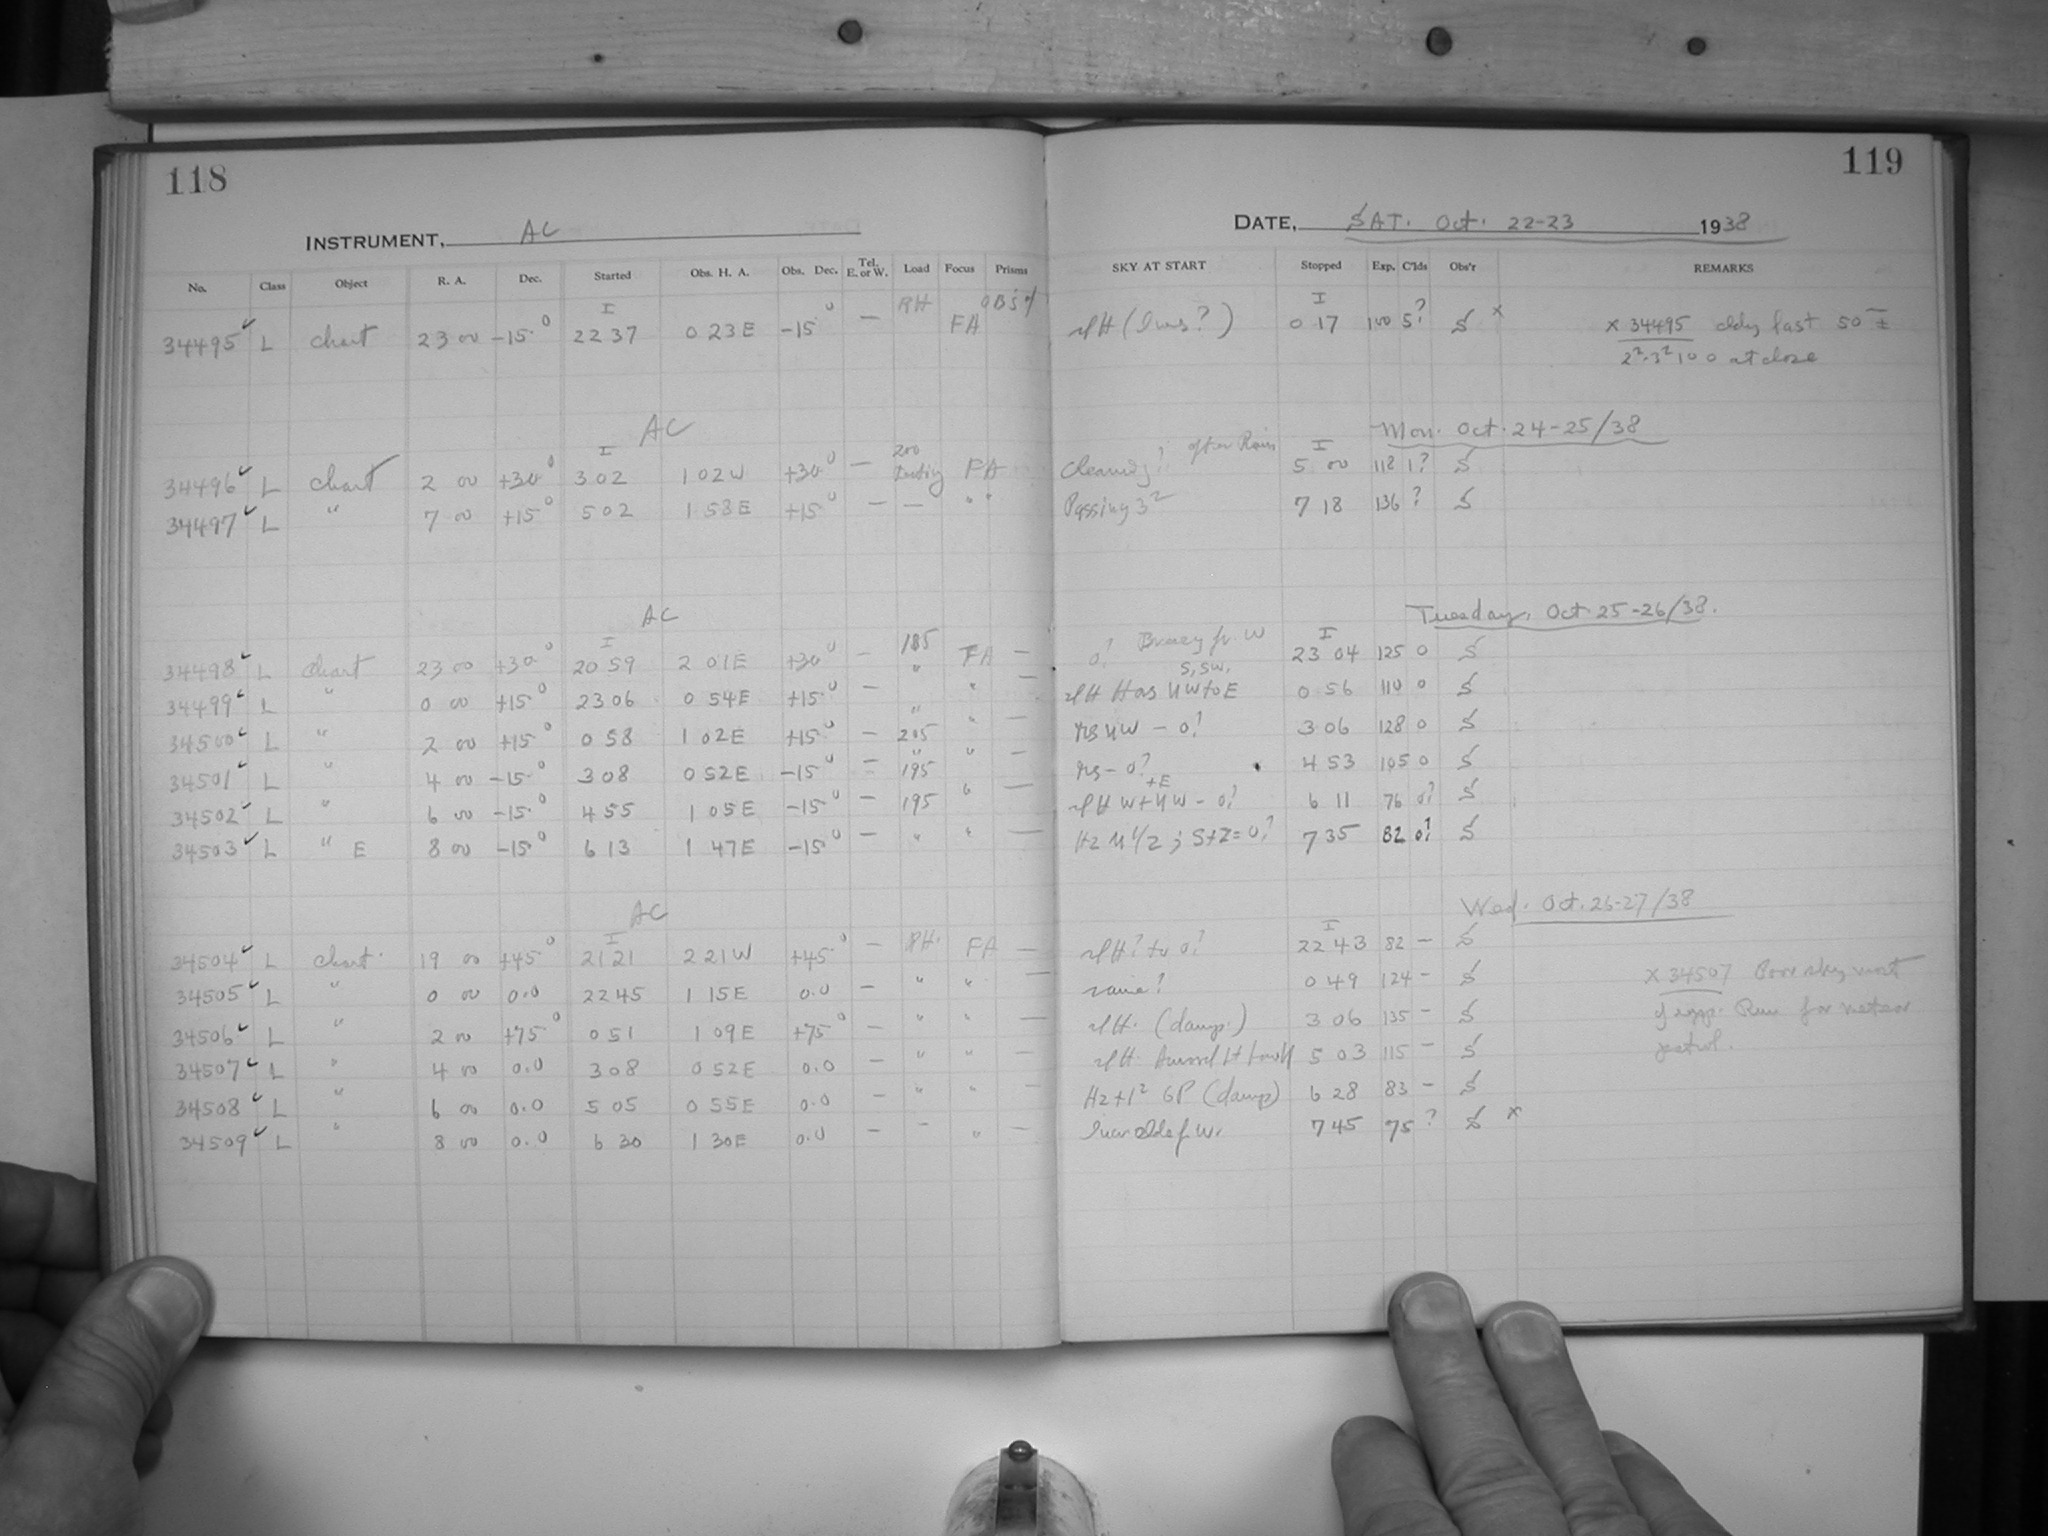 118
119
INSTRUMENT, AC
DATE, SAT. Oct. 22-23 1938
No. Class Object R. A. Dec. Started Obs. H. A. Obs. Dec. Tel. E. or W. Load Focus Prisms SKY AT START Stopped Exp. C'lds Obs'r REMARKS
I I
34495 ✓ L chart 23 00 -15.° 22 37 0 23 E -15° — RH FA 0 17 100 5? S x x 34495 cldy fast 50 m ±
2².3² 100 at close
AC Mon. Oct. 24-25/38
I after Rain I
34496 ✓ L chart 2 00 +30° 3 02 1 02 W +30.° — 200 FA 5 00 118 1? S
34497 ✓ L " 7 00 +15° 5 02 1 53 E +15° — — " " Passing 3² 7 18 136 ? S
AC Tuesday, Oct. 25-26/38.
I I
34498 ✓ L chart 23 00 +30° 20 59 2 01 E +30° — 185 FA — 0? Breezy fr. W 23 04 125 0 S
S, SW.
34499 ✓ L " 0 00 +15.° 23 06 0 54 E +15.° — " " — 0 56 110 0 S
34500 ✓ L " 2 00 +15° 0 58 1 02 E +15° — 205 " — 3 06 128 0 S
34501 ✓ L " 4 00 -15.° 3 08 0 52 E -15° — 195 " — 4 53 105 0 S
34502 ✓ L " 6 00 -15.° 4 55 1 05 E -15° — 195 " — 6 11 76 0? S
34503 ✓ L " E 8 00 -15.° 6 13 1 47 E -15° — " " — 7 35 82 0? S
AC Wed. Oct. 26-27/38
I I
34504 ✓ L chart. 19 00 +45° 21 21 2 21 W +45° — RH. FA — 22 43 82 — S
34505 ✓ L " 0 00 0.0 22 45 1 15 E 0.0 — " " — same? 0 49 124 — S x 34507 Poor sky most
34506 ✓ L " 2 00 +75.° 0 51 1 09 E +75° — " " — (damp.) 3 06 135 — S of exp. Run for meteor
34507 ✓ L " 4 00 0.0 3 08 0 52 E 0.0 — " " — 5 03 115 — S patrol.
34508 ✓ L " 6 00 0.0 5 05 0 55 E 0.0 — " " — Hz + 1² GP (damp) 6 28 83 — S
34509 ✓ L " 8 00 0.0 6 30 1 30 E 0.0 — — " — 7 45 75 ? S x